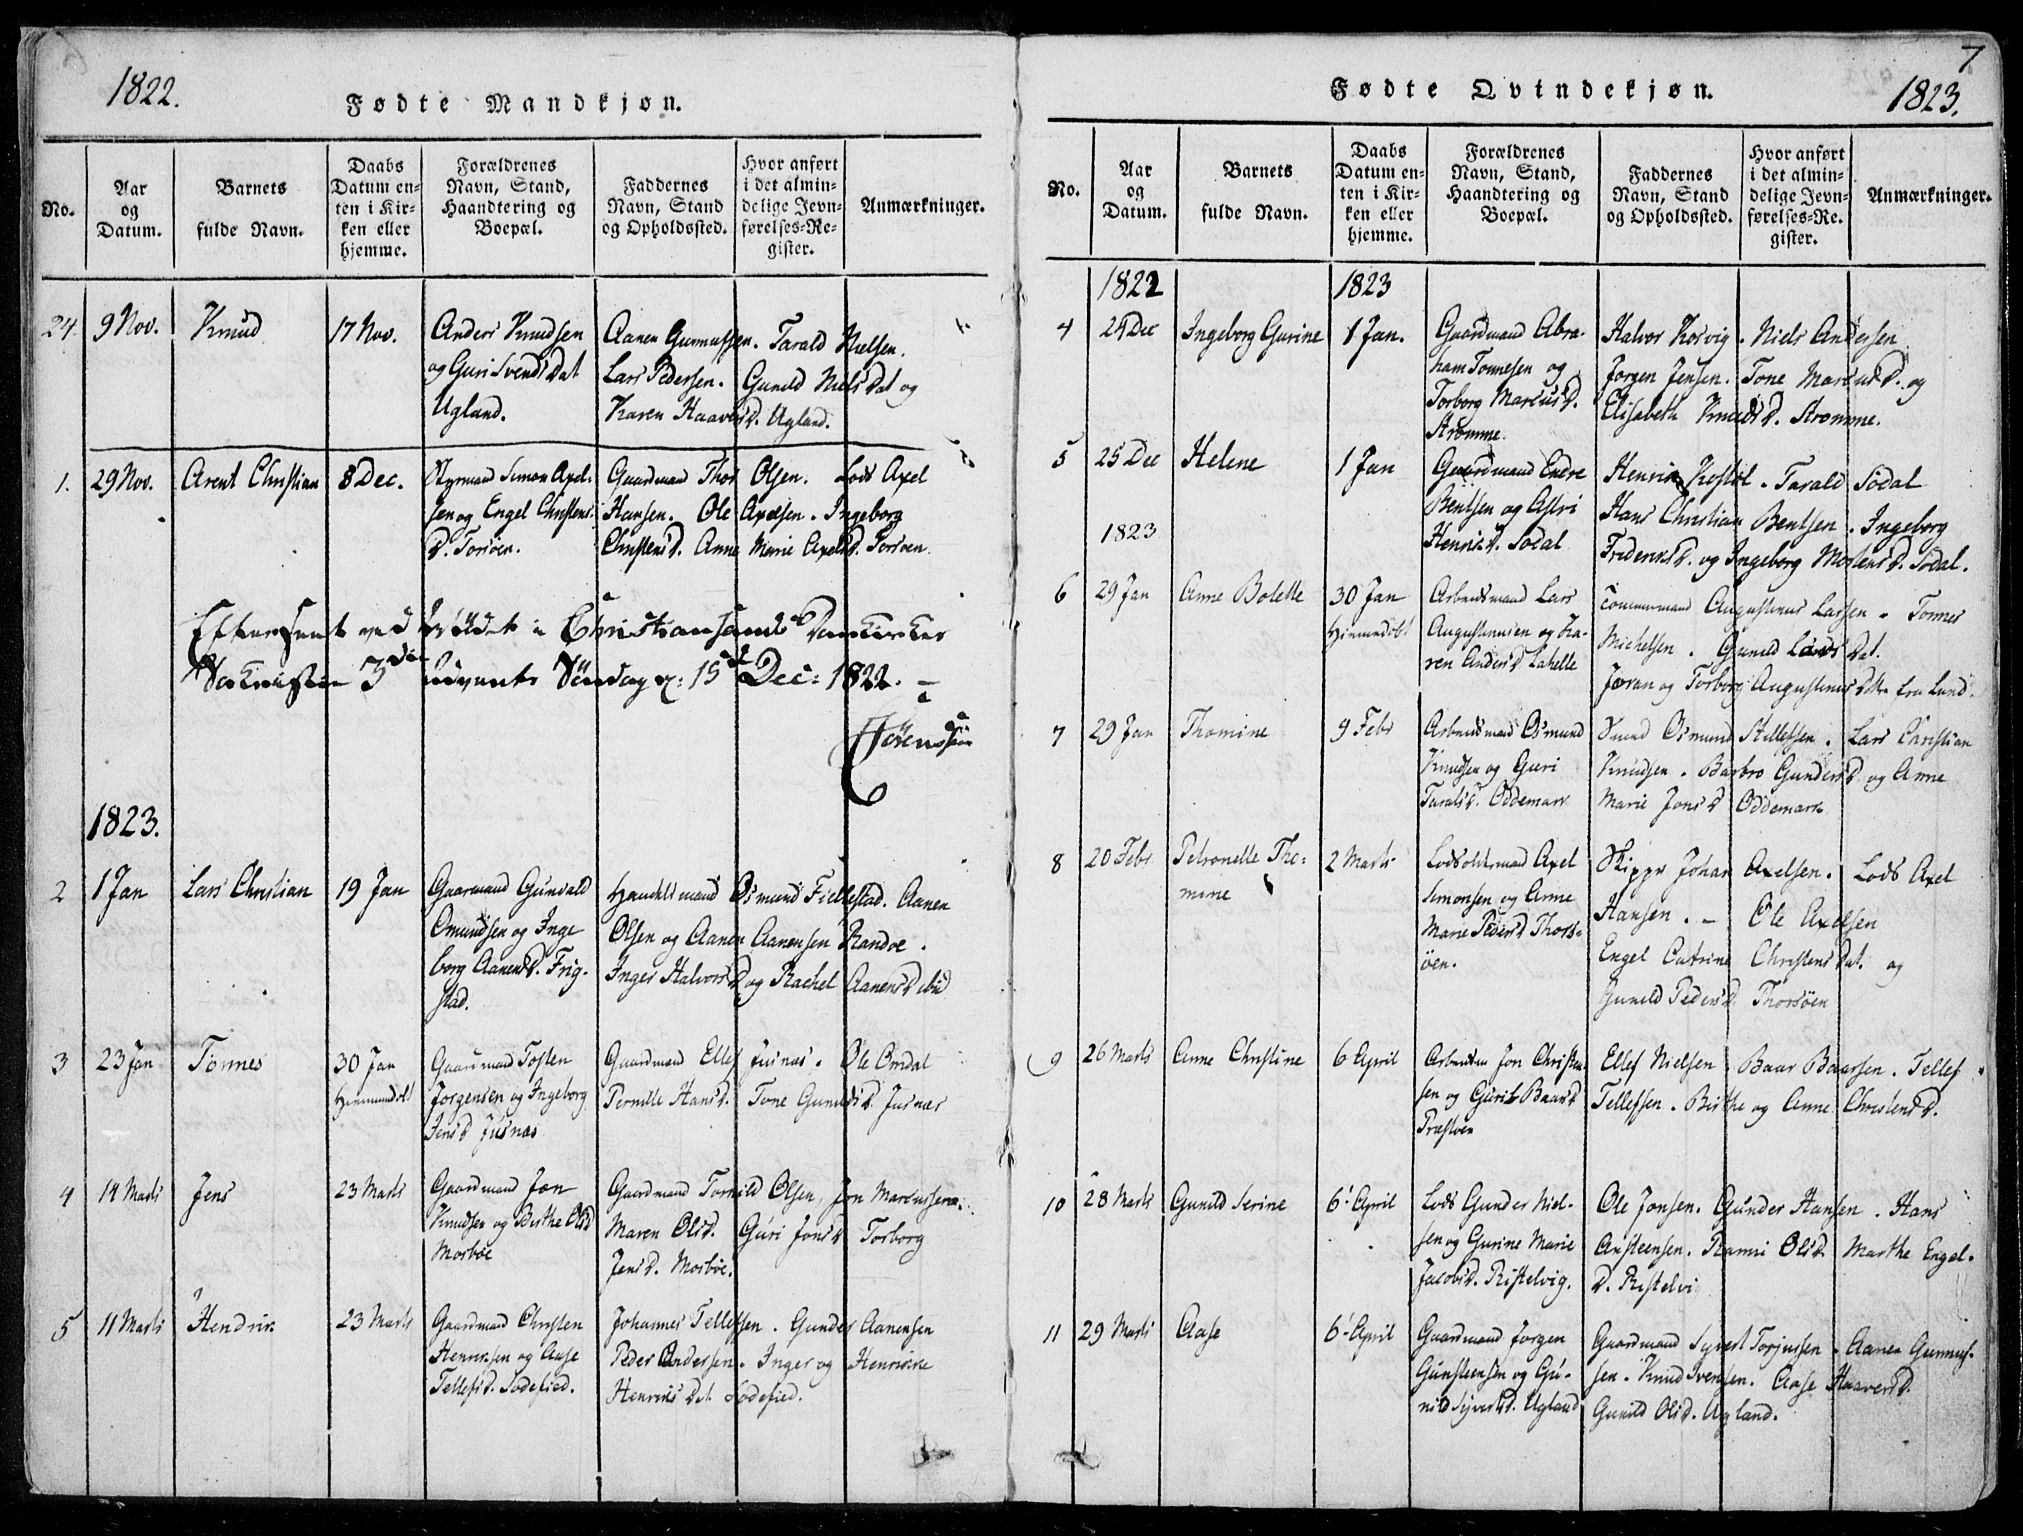 1822.
Fødte Mandkjøn.
No.
Aar
og
Datum.
Barnets
fulde Navn.
Daabs
Datum en-
ten i Kir-
ken eller
hjemme.
Forældrenes
Navn, Stand,
Haandtering og
Boepæl.
Faddernes
Navn, Stand
og Opholdssted.
Hvor anført
i det almin-
delige Jevn-
førelses-Re-
gister.
Anmærkninger.
24. 9 Nov. Knud 17 Nov.
Anders Knudsen
og Guri Svends Dat
Ugland.
Aanen Gunnufsen. Tarald Nielsen.
Lars Pedersen. Gunild Niels Dat og
Karen Haavers D. Ugland.
1. 29 Nov. Arent Christian 8 Dec.
Styrmand Simon Axel-
sen og Engel Christens
D. Torsöen.
Gaardmand Thor Olsen. Lods Axel
Hansen. Ole Axelsen. Ingeborg
Christens D. Anne Marie Axels D. Torsöen.
Efterseet ved i Christiansands Domkirkes
Sakristie 3die Advents Söndag d: 15de Dec: 1822. –
Sörenssen
1823.
2 1 Jan Lars Christian 19 Jan
Gaarmand Gunvald
Omundsen og Inge
borg Aanens D. Frig-
stad.
Handelsmand Osmund Fiellestad. Aanen
Olsen og Aanen Aanensen Randöe.
Inger Halvors D og Rachel Aanens D ibid
3 23 Jan Tönnes 30 Jan
Hjemmedöbt
Gaardmand Tosten
Jorgensen og Ingeborg
Jens D Jusnæs
Gaardmand Ellef Jusnæs. Ole Omdal
Pernille Hans D. Tone Gunilds D. Jusnæs
4 14 Marts Jens 23 Marts
Gaardmand Jon
Knudsen og Birthe Ols D
Mosböe
Gaardmand Tornild Olsen, Jon Marcussen.
Maren Ols D. Guri Jons D Torborg
Jens D. Mosböe.
5 11 Marts Hendrik 23 Marts
Gaardmand Christen
Henriksen og Aase
Tellefs D. Sodefied.
Johannes Tellefsen. Gunder Aanensen
Peder Andersen. Inger og Henrikke
Henriks Dat Sodefied.
7
Fødte Qvindekjøn.
1823.
No.
Aar
og
Datum.
Barnets
fulde Navn.
Daabs
Datum en-
ten i Kir-
ken eller
hjemme.
Forældrenes
Navn, Stand,
Haandtering og
Boepæl.
Faddernes
Navn, Stand
og Opholdssted.
Hvor anført
i det almin-
delige Jevn-
førelses-Re-
gister.
Anmærkninger.
1822 1823
4 24 Dec Ingeborg Gurine 1 Jan.
Gaardmand Abra-
ham Tonnesen og
Torborg Marcus D.
Strømme.
Halvor Kosvig. Niels Andersen
Jorgen Jensen. Tone Marcus D. og
Elisabeth Knuds D. Stromme.
5 25 Dec Helene 1 Jan
Gaardmand Endre
Bentsen og Astri
Henriks D. Sodal
Henrik Kostöl. Tarald Sodal
Hans Christian Bentsen. Ingeborg
Frideriks D. og Ingeborg Mortens D. Sodal.
1823
6 29 Jan Anne Bolette 30 Jan
Hjemmedöbt
Arbeidsmand Lars
Augustinusen og Ka-
ren Anders D Lahelle
Tömmermand Augustinus Larsen. Tonnes
Michelsen. Gunild Lars Dat.
Joran og Torborg Augustinus Döttre fra Lund.
7 29 Jan Thomine 9 Febr
Arbeidsmand Osmund
Knudsen og Guri
Taralds D. Oddemark
Osmund Stillefsen. Lars Christian
Knudsen. Barbro Gunders D og Anne
Marie Jons D Oddemark
8 20 Febr Petronelle Tho-
mine 2 Marts
Lodsoldermand Axel
Simonsen og Anne
Marie Peders D Thors-
öen.
Skipper Johan Axelsen. Lods Axel
Hansen. – Ole Axelsen
Engel Catrine Christens Dat. og
Gunild Peders D Thorsöen
9 26 Marts Anne Christine 6 April
Arbeidsm Jon Christen-
sen og Gurie Baars D
Præstöen
Ellef Nielsen Baar Baarsen. Tellef
Tellefsen. Birthe og Anne Christens D.
10 28 Marts Gunild Serine 6 April
Lods Gunder Niel-
sen og Gurine Marie
Jacobs D. Ristelvig.
Ole Jonsen. Gunder Hansen. Hans
Ansteensen. Ranni Ols D Marthe Engel-
D. Ristelvi
11 29 Marts Aase 6 April
Gaardmand Jorgen
Gunsteensen og Gu-
nild Syverts D. Ugland
Gaardmand Syvert Torjussen. Aanen Gunnuf-
sen. Knud Svensen. Aase Haavers D
Gunild Ols D. Ugland.